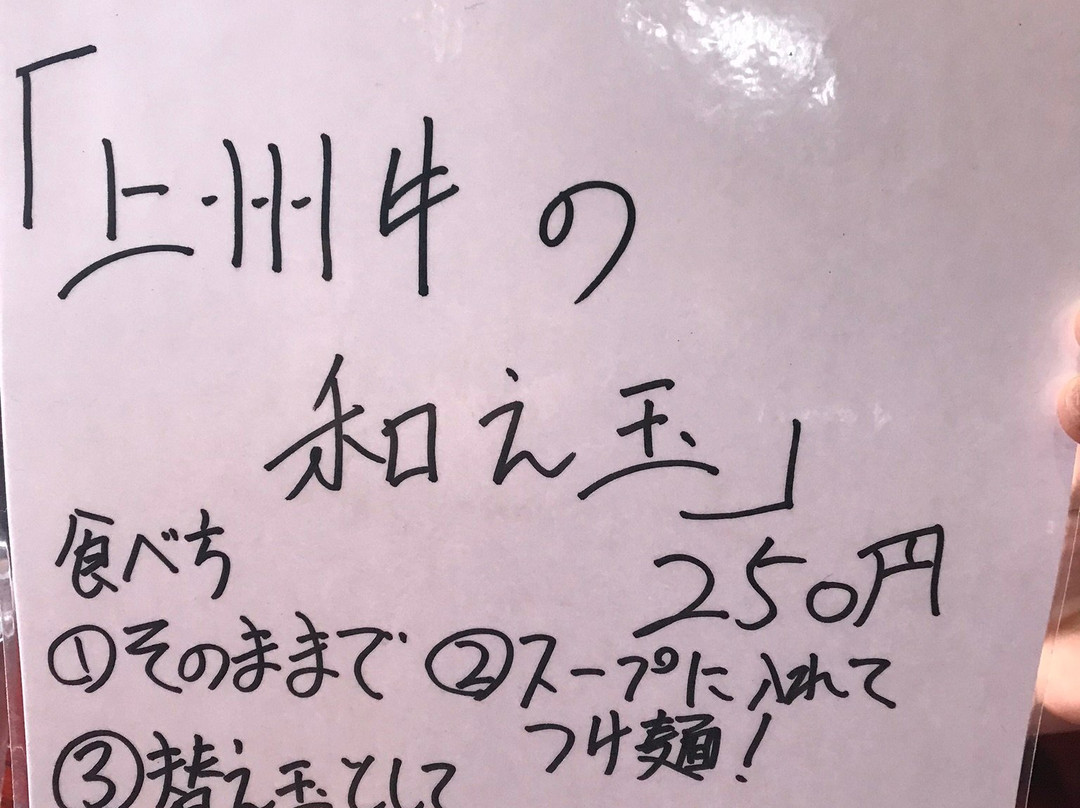 「上州牛の
和え玉」
250円
食べち
①そのままで ②スープに入れて
つけ麺!
③替え玉として